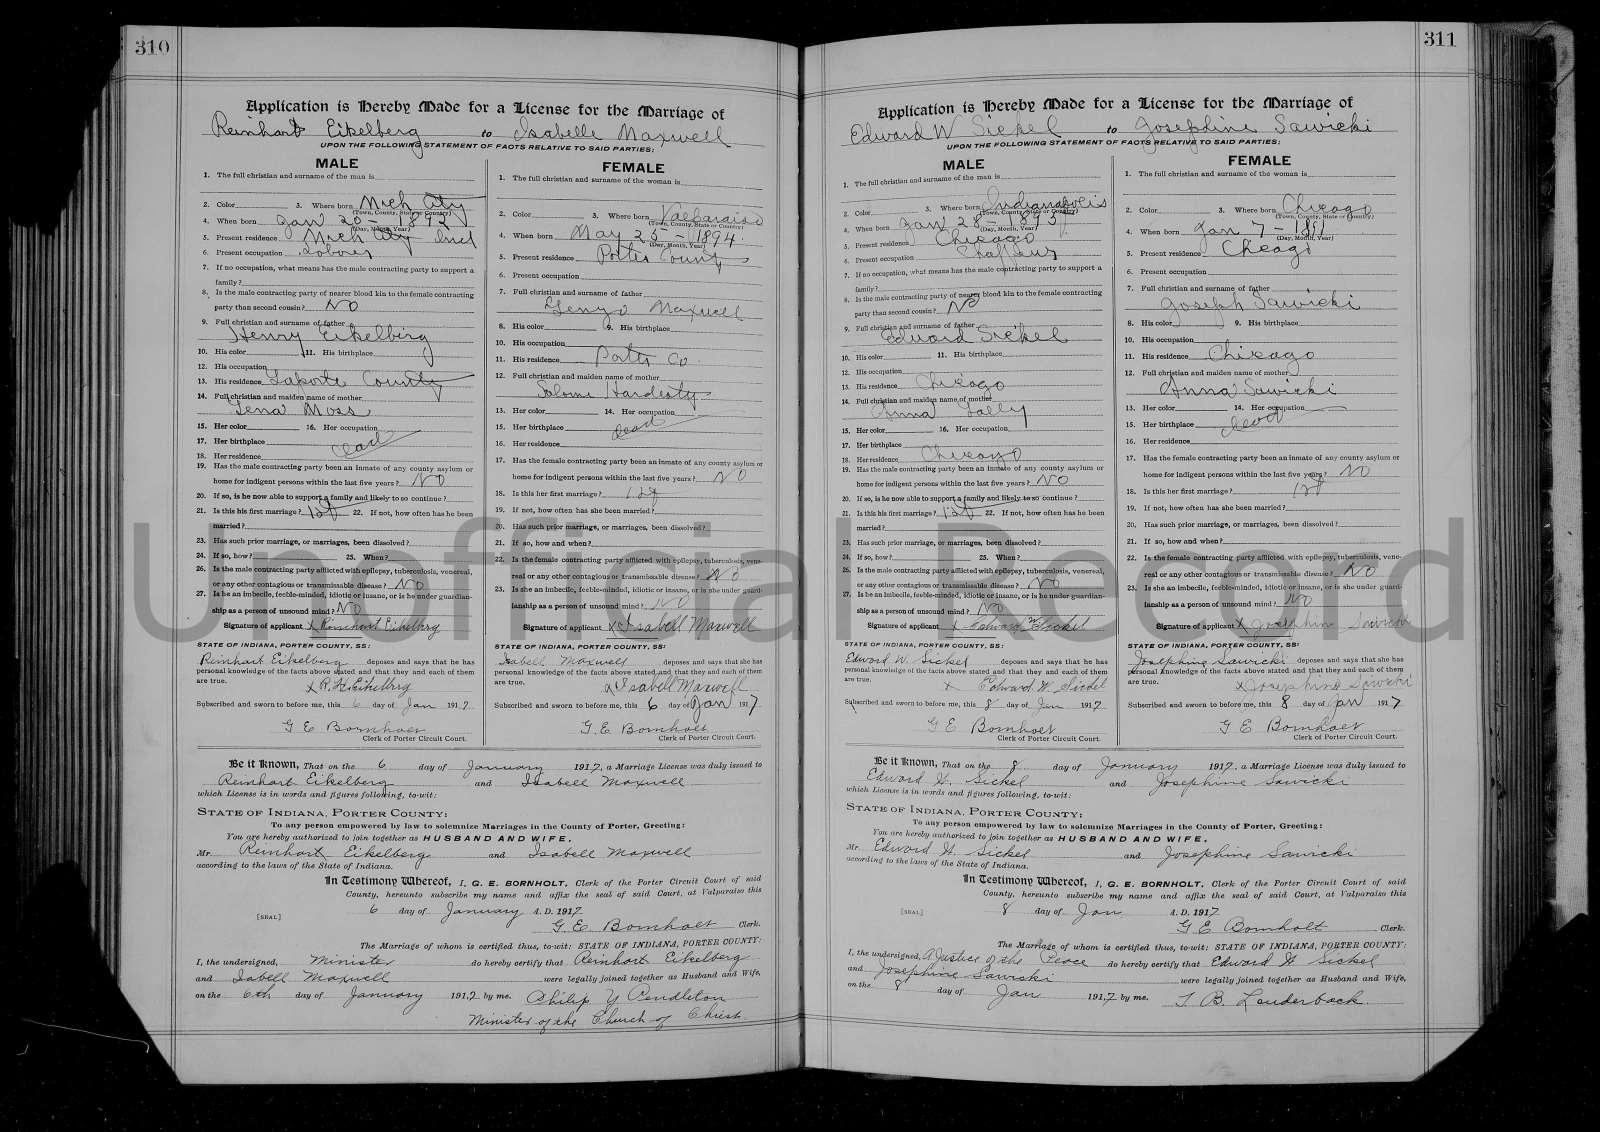 310
Application is Hereby Made for a License for the Marriage of
Reinhart Eikelberg to Isabelle Maxwell
UPON THE FOLLOWING STATEMENT OF FACTS RELATIVE TO SAID PARTIES:
MALE
1. The full christian and surname of the man is
2. Color 3. Where born Mich City
(Town, County, State or Country)
4. When born Jan 20 - 1892
(Day, Month, Year)
5. Present residence Mich City Ind
6. Present occupation Laborer
7. If no occupation, what means has the male contracting party to support a
family?
8. Is the male contracting party of nearer blood kin to the female contracting
party than second cousin? No
9. Full christian and surname of father
Henry Eikelberg
10. His color 11. His birthplace
12. His occupation
13. His residence Laporte County
14. Full christian and maiden name of mother
Lena Moss
15. Her color 16. Her occupation
17. Her birthplace dead
18. Her residence
19. Has the male contracting party been an inmate of any county asylum or
home for indigent persons within the last five years? No
20. If so, is he now able to support a family and likely to so continue?
21. Is this his first marriage? 1st 22. If not, how often has he been
married?
23. Has such prior marriage, or marriages, been dissolved?
24. If so, how? 25. When?
26. Is the male contracting party afflicted with epilepsy, tuberculosis, venereal,
or any other contagious or transmissable disease? No
27. Is he an imbecile, feeble-minded, idiotic or insane, or is he under guardian-
ship as a person of unsound mind? No
Signature of applicant x Reinhart Eikelberg
STATE OF INDIANA, PORTER COUNTY, SS:
Reinhart Eikelberg deposes and says that he has
personal knowledge of the facts above stated and that they and each of them
are true.
x R. H. Eikelberg
Subscribed and sworn to before me, this 6 day of Jan 1917
G E Bornholt
Clerk of Porter Circuit Court.
FEMALE
1. The full christian and surname of the woman is
2. Color 3. Where born Valparaiso
(Town, County, State or Country)
4. When born May 25 - 1894.
(Day, Month, Year)
5. Present residence Porter County
6. Present occupation
7. Full christian and surname of father
Maxwell
8. His color 9. His birthplace
10. His occupation
11. His residence Porter Co
12. Full christian and maiden name of mother
Salome Hardesty
13. Her color 14. Her occupation
15. Her birthplace dead
16. Her residence
17. Has the female contracting party been an inmate of any county asylum or
home for indigent persons within the last five years? No
18. Is this her first marriage? 1st
19. If not, how often has she been married?
20. Has such prior marriage, or marriages, been dissolved?
21. If so, how and when?
22. Is the female contracting party afflicted with epilepsy, tuberculosis, vene-
real or any other contagious or transmissable disease? No
23. Is she an imbecile, feeble-minded, idiotic or insane, or is she under guard-
ianship as a person of unsound mind? No
Signature of applicant x Isabell Maxwell
STATE OF INDIANA, PORTER COUNTY, SS:
Isabell Maxwell deposes and says that she has
personal knowledge of the facts above stated and that they and each of them
are true.
x Isabell Maxwell
Subscribed and sworn to before me, this 6 day of Jan 1917
G. E Bornholt
Clerk of Porter Circuit Court.
Be it Known, That on the 6 day of January 1917, a Marriage License was duly issued to
Reinhart Eikelberg and Isabell Maxwell
which License is in words and figures following, to-wit:
STATE OF INDIANA, PORTER COUNTY:
To any person empowered by law to solemnize Marriages in the County of Porter, Greeting:
You are hereby authorized to join together as HUSBAND AND WIFE,
Mr. Reinhart Eikelberg and Isabell Maxwell
according to the laws of the State of Indiana.
In Testimony Whereof, I, G. E. BORNHOLT, Clerk of the Porter Circuit Court of said
County, hereunto subscribe my name and affix the seal of said Court, at Valparaiso this
[SEAL] 6 day of January A. D. 1917
G. E. Bornholt Clerk.
The Marriage of whom is certified thus, to-wit: STATE OF INDIANA, PORTER COUNTY:
I, the undersigned, Minister do hereby certify that Reinhart Eikelberg
and Isabell Maxwell were legally joined together as Husband and Wife,
on the 6th day of January 1917 by me. Philip Y Pendleton
Minister of the Church of Christ.
311
Application is Hereby Made for a License for the Marriage of
Edward W Sickel to Josephine Sawicki
UPON THE FOLLOWING STATEMENT OF FACTS RELATIVE TO SAID PARTIES:
MALE
1. The full christian and surname of the man is
2. Color 3. Where born Indianapolis
(Town, County, State or Country)
4. When born Jan 28 - 1895
(Day, Month, Year)
5. Present residence Chicago
6. Present occupation Chaffeur
7. If no occupation, what means has the male contracting party to support a
family?
8. Is the male contracting party of nearer blood kin to the female contracting
party than second cousin? No
9. Full christian and surname of father
Edward Sickel
10. His color 11. His birthplace
12. His occupation
13. His residence Chicago
14. Full christian and maiden name of mother
Anna Lally
15. Her color 16. Her occupation
17. Her birthplace
18. Her residence Chicago
19. Has the male contracting party been an inmate of any county asylum or
home for indigent persons within the last five years? No
20. If so, is he now able to support a family and likely to so continue?
21. Is this his first marriage? 1st 22. If not, how often has he been
married?
23. Has such prior marriage, or marriages, been dissolved?
24. If so, how? 25. When?
26. Is the male contracting party afflicted with epilepsy, tuberculosis, venereal,
or any other contagious or transmissable disease? No
27. Is he an imbecile, feeble-minded, idiotic or insane, or is he under guardian-
ship as a person of unsound mind? No
Signature of applicant x Edward W Sickel
STATE OF INDIANA, PORTER COUNTY, SS:
Edward W. Sickel deposes and says that he has
personal knowledge of the facts above stated and that they and each of them
are true.
x Edward W. Sickel
Subscribed and sworn to before me, this 8 day of Jan 1917
G E Bornholt
Clerk of Porter Circuit Court.
FEMALE
1. The full christian and surname of the woman is
2. Color 3. Where born Chicago
(Town, County, State or Country)
4. When born Jan 7 - 1891
(Day, Month, Year)
5. Present residence Chicago
6. Present occupation
7. Full christian and surname of father
Joseph Sawicki
8. His color 9. His birthplace
10. His occupation
11. His residence Chicago
12. Full christian and maiden name of mother
Anna Sawicki
13. Her color 14. Her occupation
15. Her birthplace dead
16. Her residence
17. Has the female contracting party been an inmate of any county asylum or
home for indigent persons within the last five years? No
18. Is this her first marriage? 1st
19. If not, how often has she been married?
20. Has such prior marriage, or marriages, been dissolved?
21. If so, how and when?
22. Is the female contracting party afflicted with epilepsy, tuberculosis, vene-
real or any other contagious or transmissable disease? No
23. Is she an imbecile, feeble-minded, idiotic or insane, or is she under guard-
ianship as a person of unsound mind? No
Signature of applicant x Josephin Sawicki
STATE OF INDIANA, PORTER COUNTY, SS:
Josephine Sawicki deposes and says that she has
personal knowledge of the facts above stated and that they and each of them
are true.
x Josephine Sawicki
Subscribed and sworn to before me, this 8 day of Jan 1917
G E Bornholt
Clerk of Porter Circuit Court.
Be it Known, That on the 8 day of January 1917, a Marriage License was duly issued to
Edward W. Sickel and Josephine Sawicki
which License is in words and figures following, to-wit:
STATE OF INDIANA, PORTER COUNTY:
To any person empowered by law to solemnize Marriages in the County of Porter, Greeting:
You are hereby authorized to join together as HUSBAND AND WIFE,
Mr. Edward W. Sickel and Josephine Sawicki
according to the laws of the State of Indiana.
In Testimony Whereof, I, G. E. BORNHOLT, Clerk of the Porter Circuit Court of said
County, hereunto subscribe my name and affix the seal of said Court, at Valparaiso this
[SEAL] 8 day of Jan A. D. 1917
G E Bornholt Clerk.
The Marriage of whom is certified thus, to-wit: STATE OF INDIANA, PORTER COUNTY:
I, the undersigned, A Justice of the Peace do hereby certify that Edward W Sickel
and Josephine Sawicki were legally joined together as Husband and Wife,
on the 8 day of Jan 1917 by me. T. B. Louderback
Unofficial Record